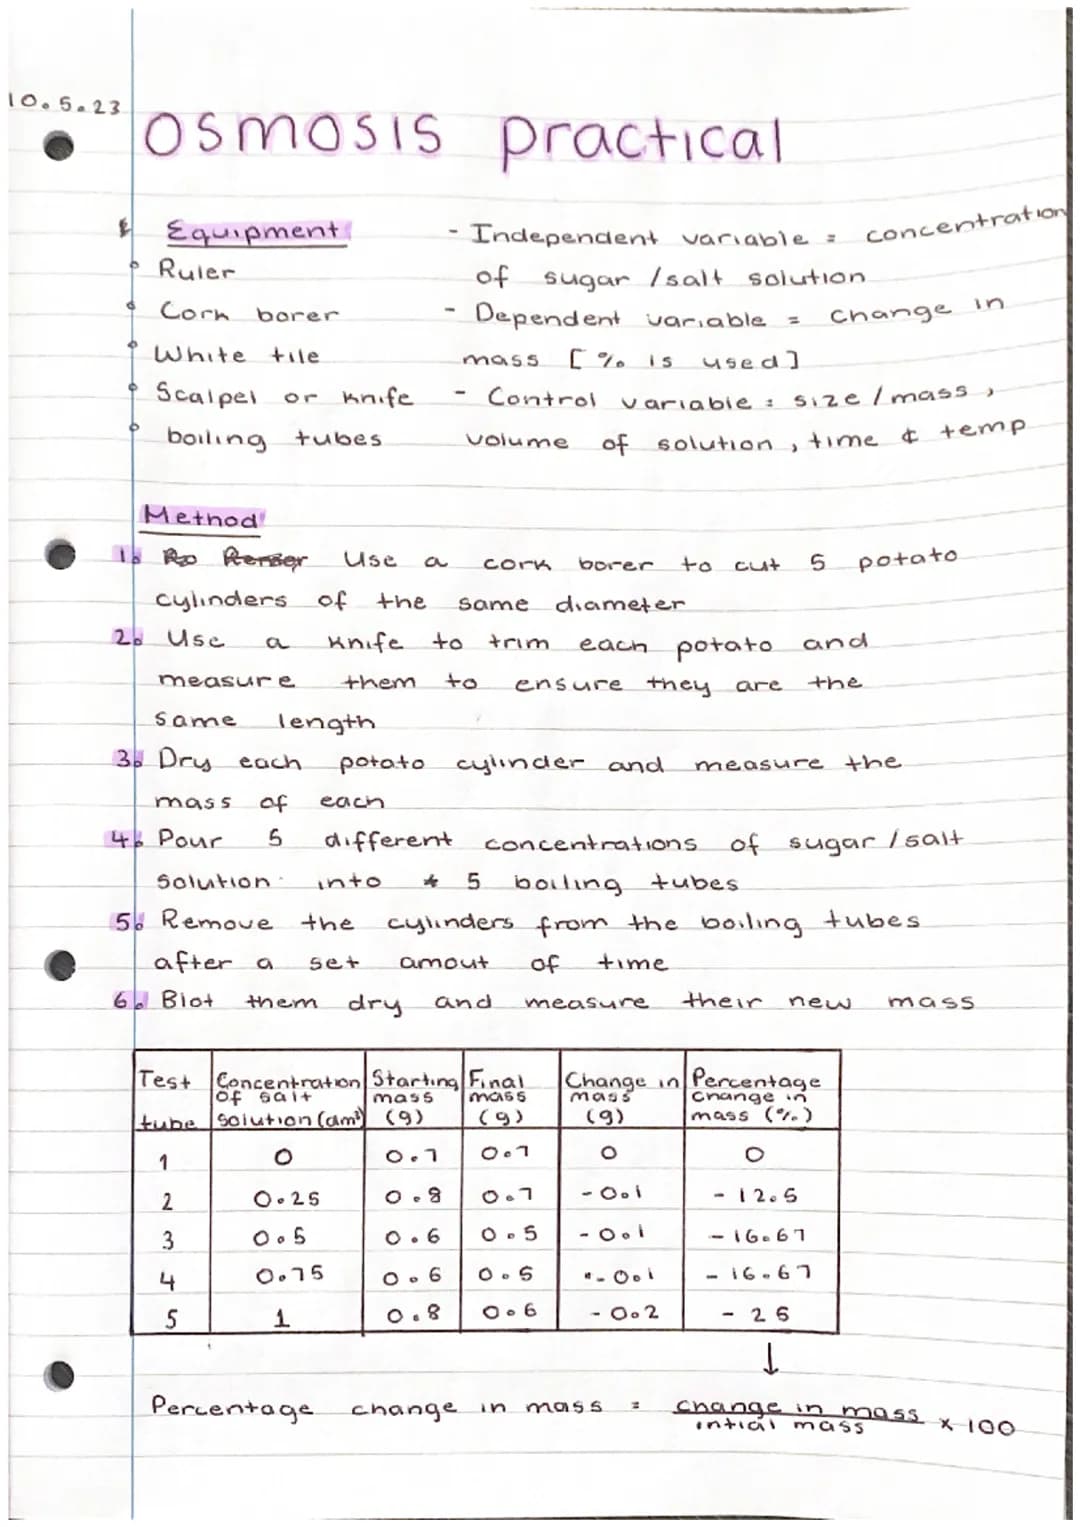 10.5.23
osmosis practical
Equipment
Ruler
Cork borer
White tile
Scalpel or knife
boiling tubes
- Independent variable = concentration
of sugar / salt solution
- Dependent variable = change in
mass [% is used]
- Control variable : size / mass,
volume of solution, time & temp
Method
1. Use a cork borer to cut 5 potato
cylinders of the same diameter
2. Use a knife to trim each potato and
measure them to ensure they are the
same length
3. Dry each potato cylinder and measure the
mass of each
4. Pour 5 different concentrations of sugar / salt
solution into 5 boiling tubes
5. Remove the cylinders from the boiling tubes
after a set amout of time
6. Blot them dry and measure their new mass
Test tube | Concentration of salt solution (dm³) | Starting mass (g) | Final mass (g) | Change in mass (g) | Percentage change in mass (%)
1 | 0 | 0.7 | 0.7 | 0 | 0
2 | 0.25 | 0.8 | 0.7 | -0.1 | -12.5
3 | 0.5 | 0.6 | 0.5 | -0.1 | -16.67
4 | 0.75 | 0.6 | 0.5 | -0.1 | -16.67
5 | 1 | 0.8 | 0.6 | -0.2 | -25
↓
Percentage change in mass = change in mass / intial mass × 100